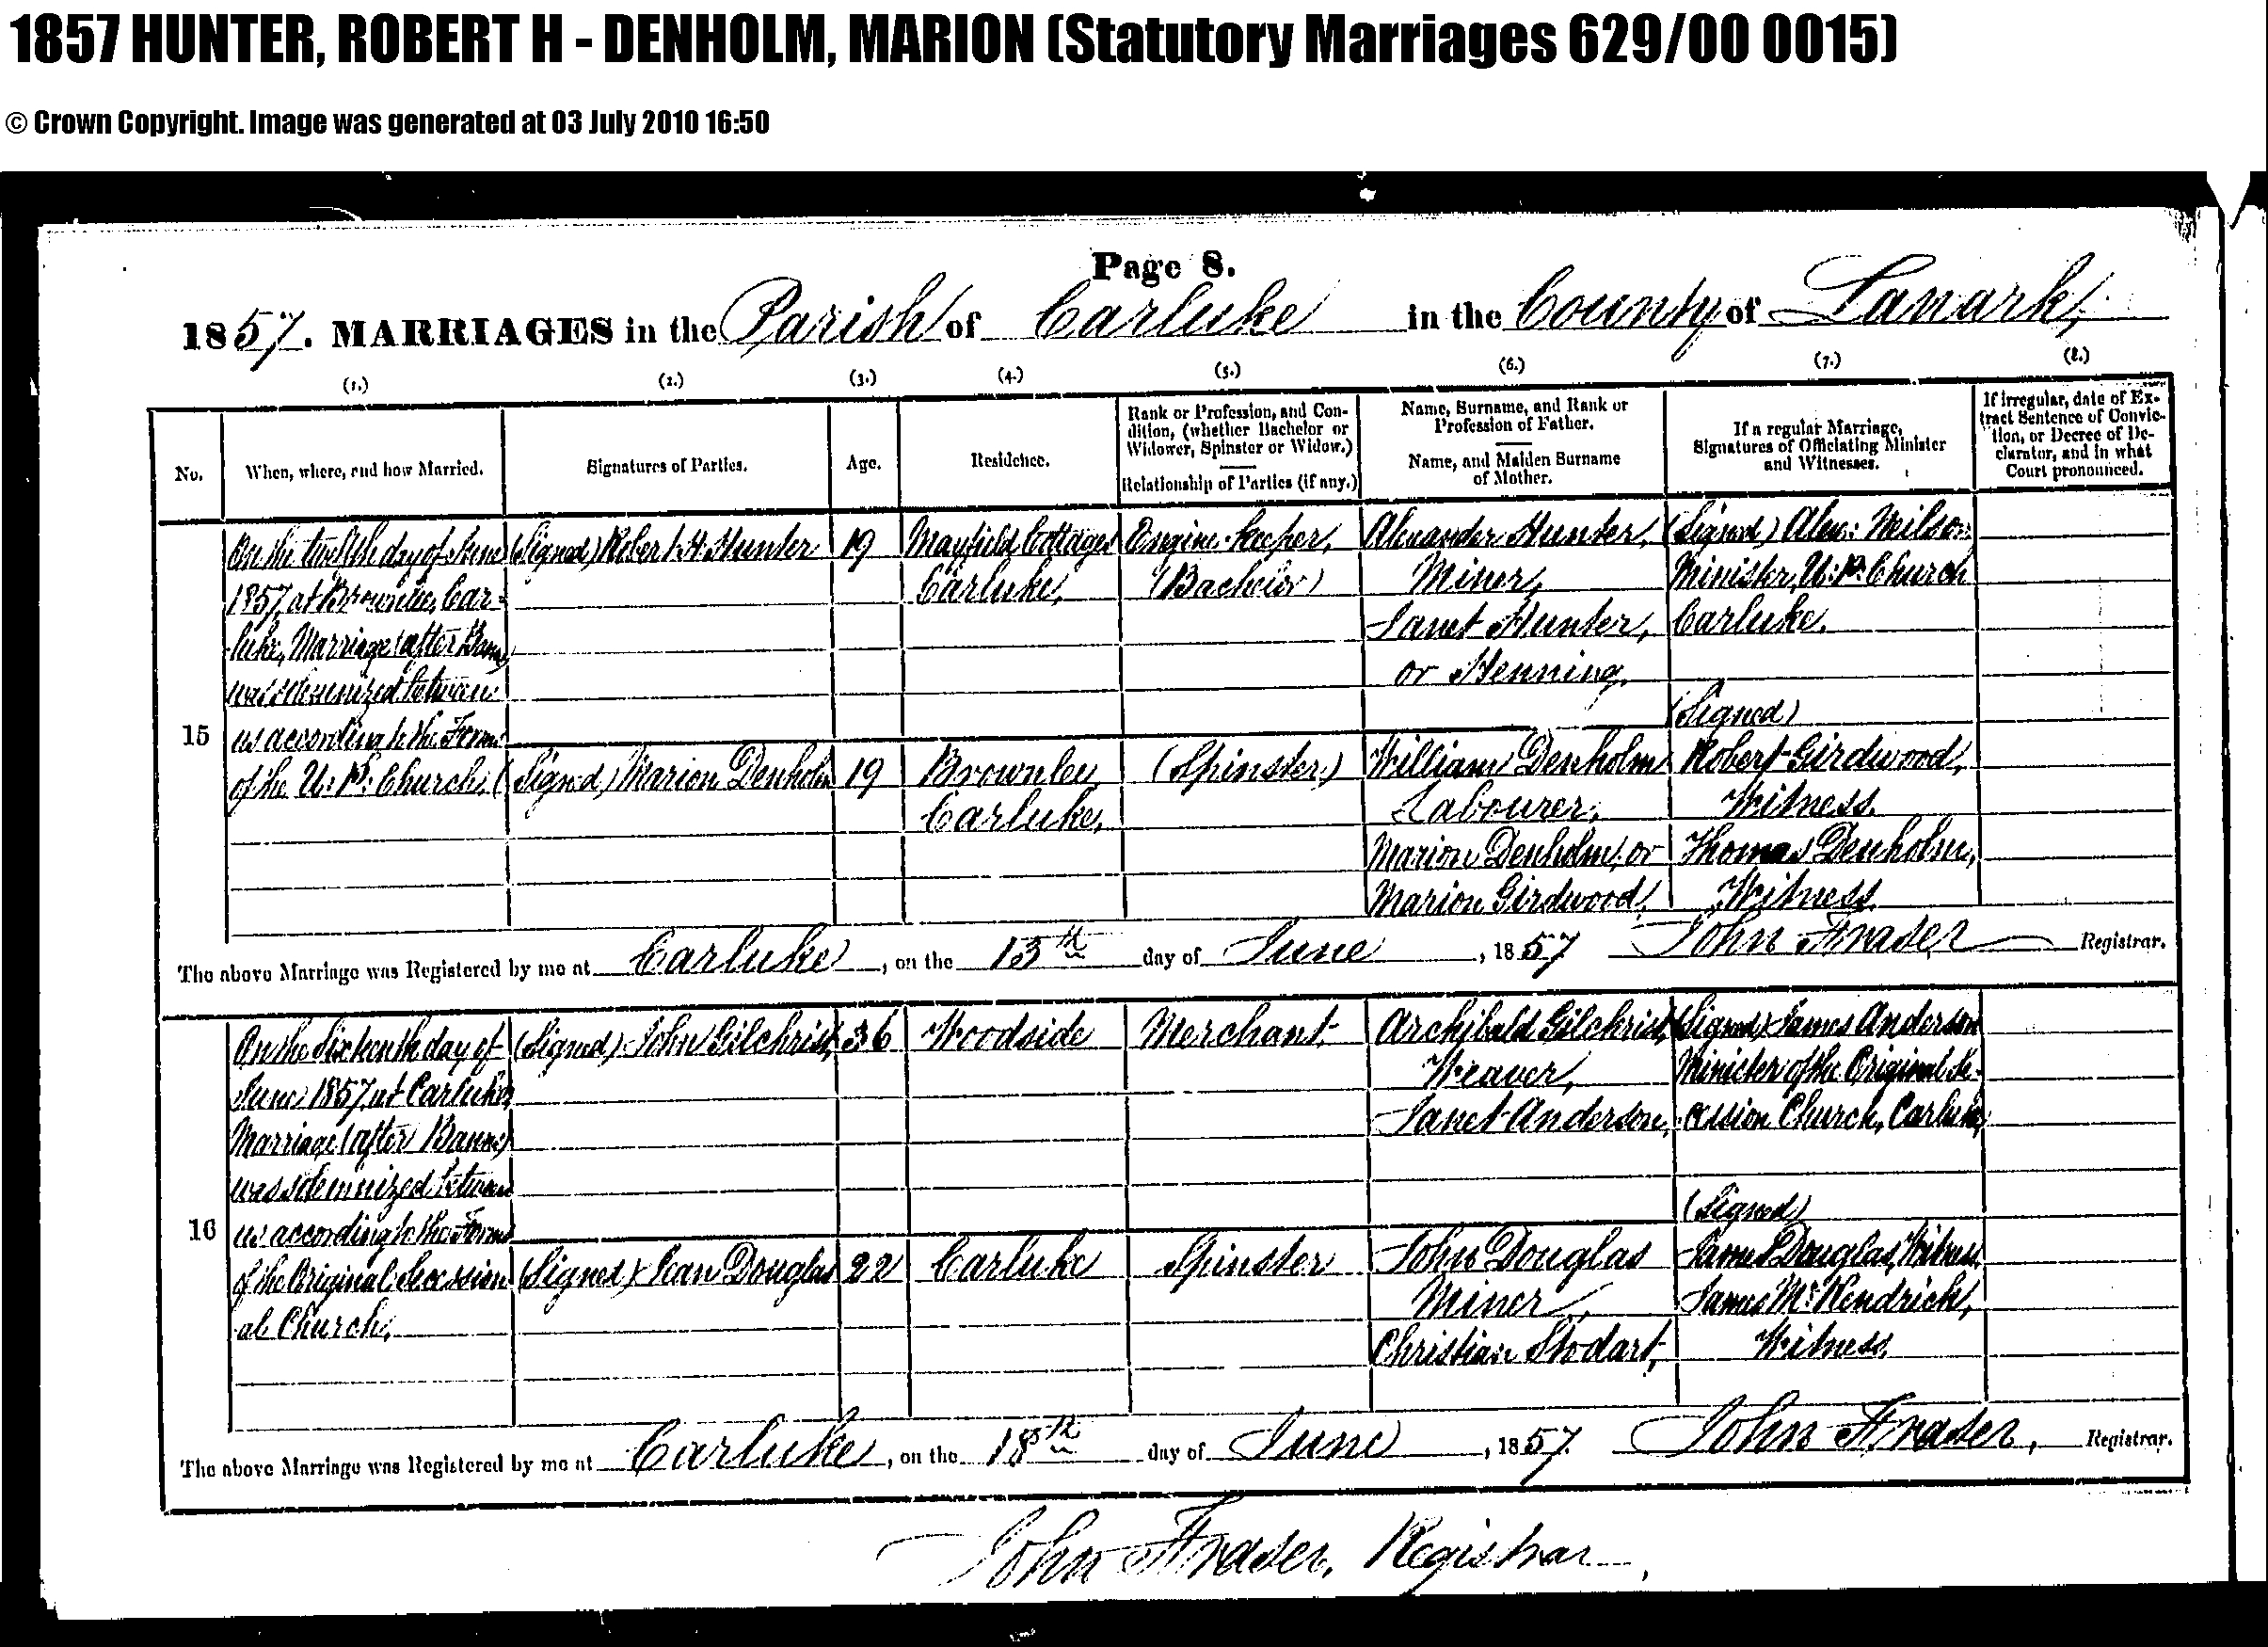 1857 HUNTER, ROBERT H - DENHOLM, MARION (Statutory Marriages 629/00 0015)
© Crown Copyright. Image was generated at 03 July 2010 16:50
Page 8.
1857. MARRIAGES in the Parish of Carluke in the County of Lanark,
(1.) (2.) (3.) (4.) (5.) (6.) (7.) (8.)
No.
When, where, and how Married.
Signatures of Parties.
Age.
Residence.
Rank or Profession, and Con-
dition, (whether Bachelor or
Widower, Spinster or Widow.)
Relationship of Parties (if any.)
Name, Surname, and Rank or
Profession of Father.
Name, and Maiden Surname
of Mother.
If a regular Marriage,
Signatures of Officiating Minister
and Witnesses.
If irregular, date of Ex-
tract Sentence of Convic-
tion, or Decree of De-
clarator, and in what
Court pronounced.
15
On the twelfth day of June
1857, at Brownlee, Car-
luke, Marriage (after Banns)
was solemnized between
us according to the Forms
of the U: P: Church.
(Signed) Robert H. Hunter
19
Mayfield Cottages
Carluke,
Engine-keeper,
(Bachelor)
Alexander Hunter,
Miner,
Janet Hunter,
or Henning.
(Signed) Alex: Wilson
Minister, U: P: Church
Carluke.
(Signed) Marion Denholm
19
Brownlee
Carluke.
(Spinster)
William Denholm
Labourer.
Marion Denholm, or
Marion Girdwood,
(Signed)
Robert Girdwood,
Witness.
Thomas Denholm,
Witness.
The above Marriage was Registered by me at Carluke, on the 13th day of June, 1857 John Fraser Registrar.
16
On the Sixteenth day of
June 1857, at Carluke,
Marriage (after Banns)
was solemnized between
us according to the Forms
of the Original Secession
al Church,
(Signed) John Gilchrist,
36
Woodside
Merchant
Archibald Gilchrist,
Weaver,
Janet Anderson,
(Signed) James Anderson
Minister of the Original Se-
cession Church, Carluke,
(Signed) Jean Douglas
22
Carluke
Spinster
John Douglas
Miner,
Christian Stodart,
(Signed)
James Douglas, Witness.
James McKendrick,
Witness.
The above Marriage was Registered by me at Carluke, on the 18th day of June, 1857. John Fraser, Registrar.
John Fraser, Registrar